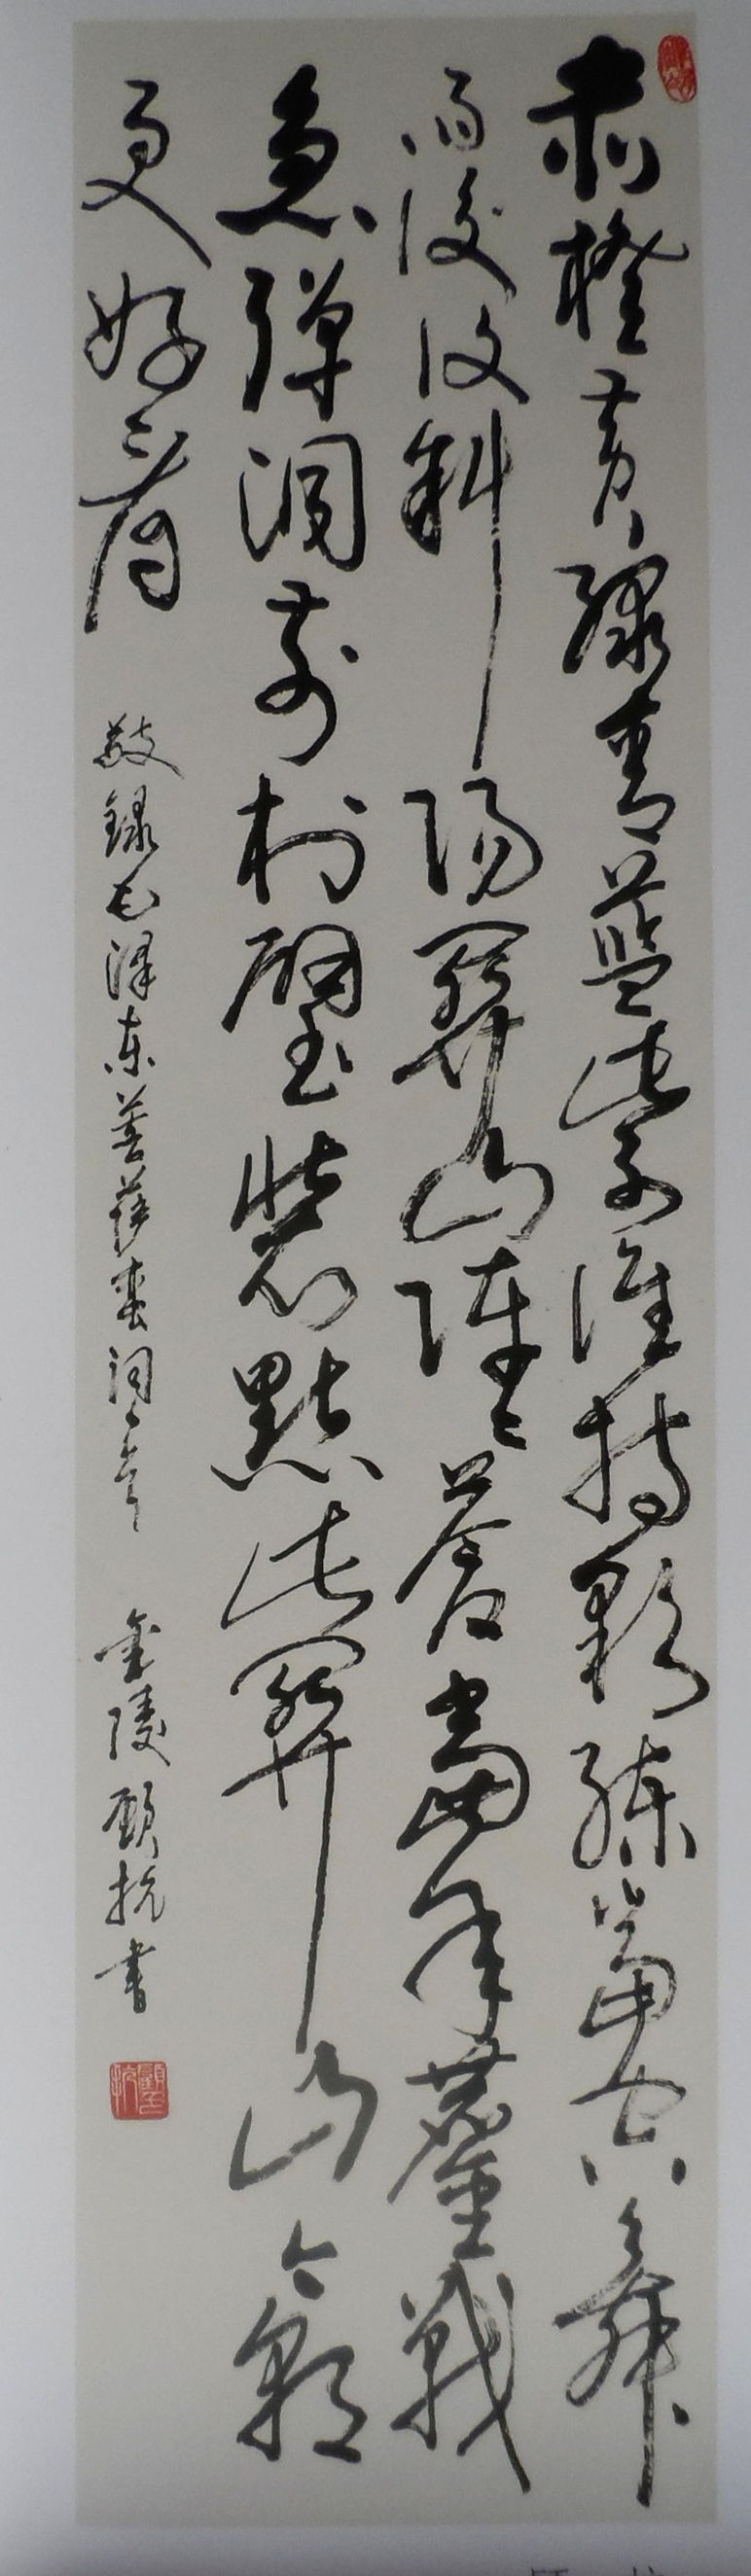 赤橙黄绿青蓝紫谁持彩练当空舞
雨后复斜阳關山阵阵苍当年鏖戰
急彈洞前村壁装點此關山今朝
更好看
敬録毛泽东菩萨蛮词一首 金陵顾抗书
顧抗